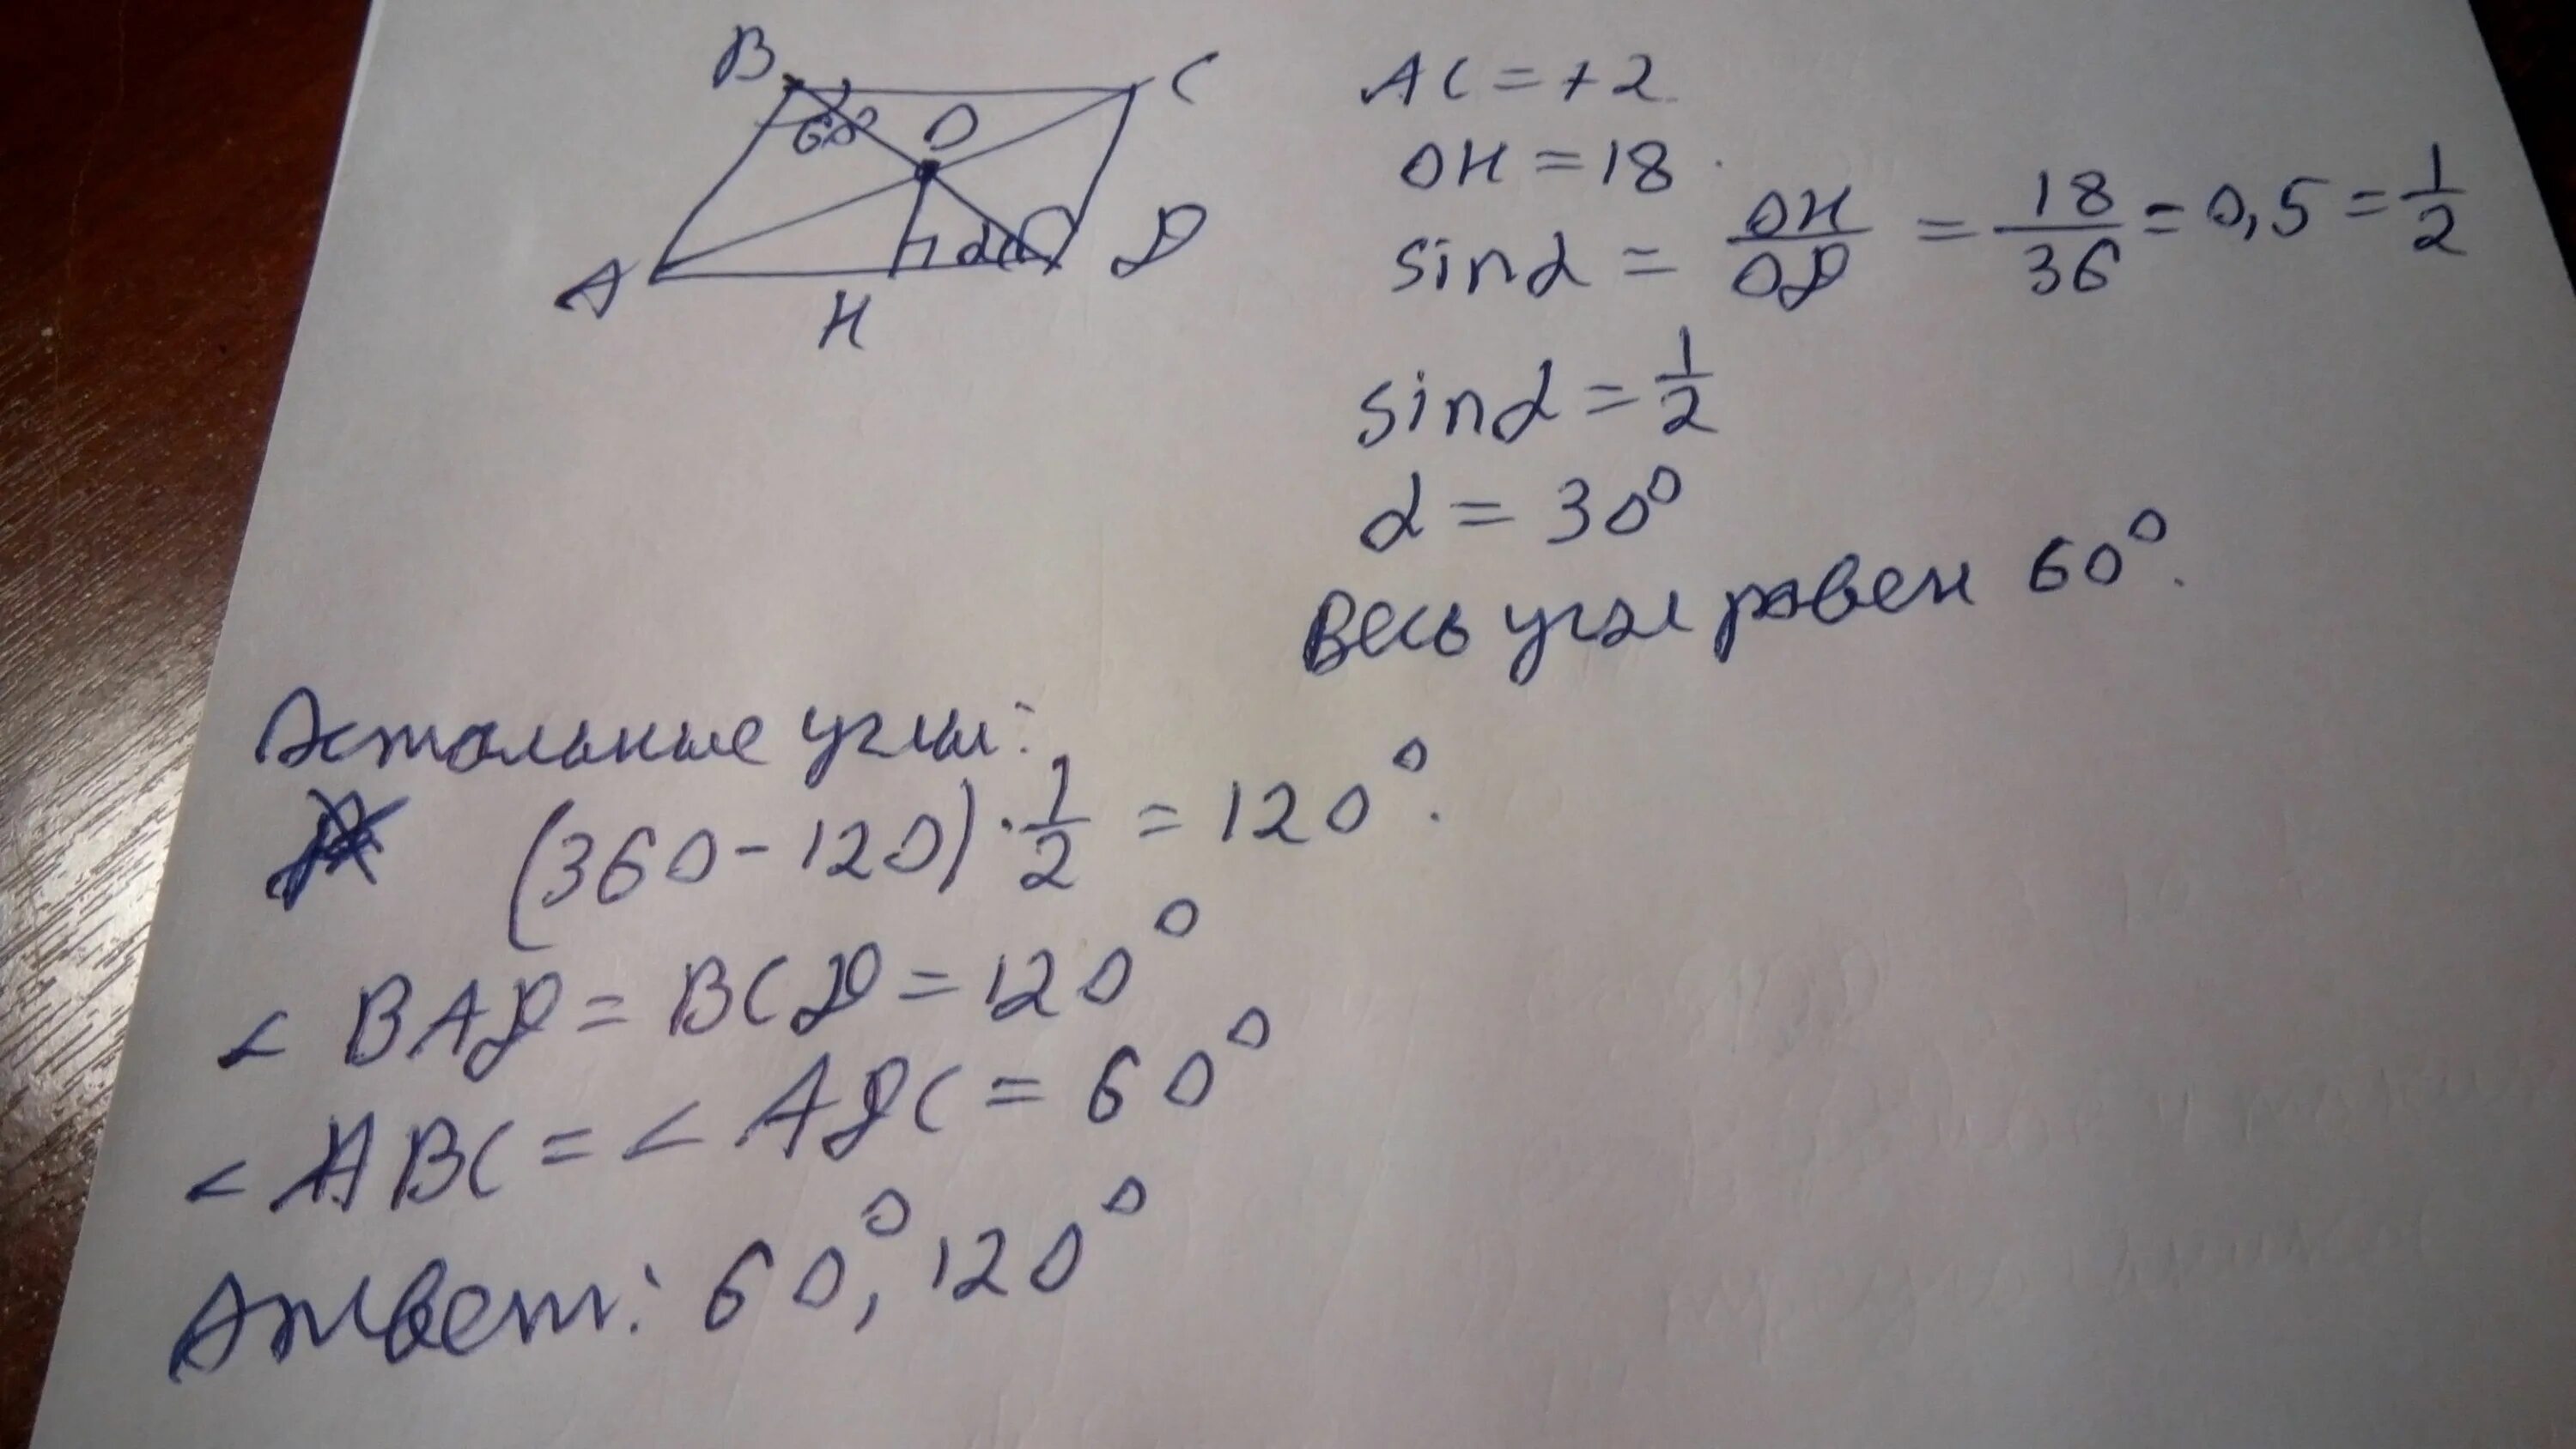 B
C
60°
O
α
A
D
H
AC = 72
OH = 18
sinα = OH/OD = 18/36 = 0,5 = 1/2
sinα = 1/2
α = 30°
Весь угол равен 60°.
Остальные углы:
(360-120)·1/2 = 120°.
∠ BAD = BCD = 120°
∠ ABC = ∠ ADC = 60°
Ответ: 60°, 120°